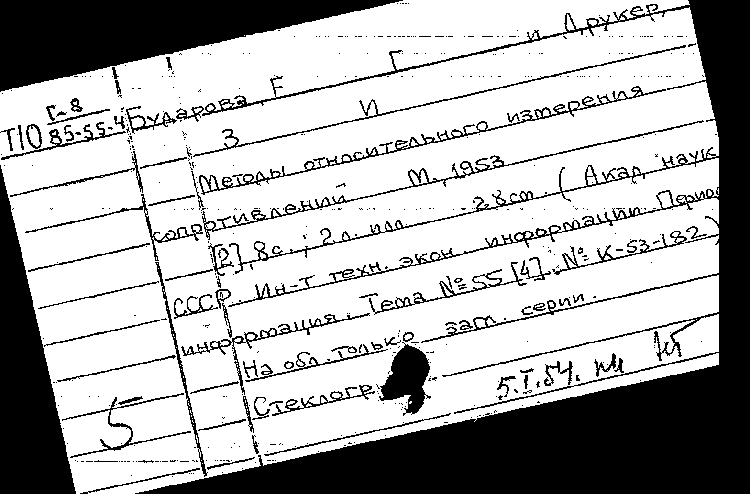 Г-8
П10 85-55-4
Бударова, Е Г и Друкер,
З И
Методы относительного измерения
сопротивлений М., 1953
[2], 8с.; 2 л. илл 28см. (Акад. наук
СССР. Ин-т техн. экон. информации. Перио
информация. Тема №55 [4]. № К-53-182)
На обл. только загл. серии.
Стеклогр.
5.I.54.
5